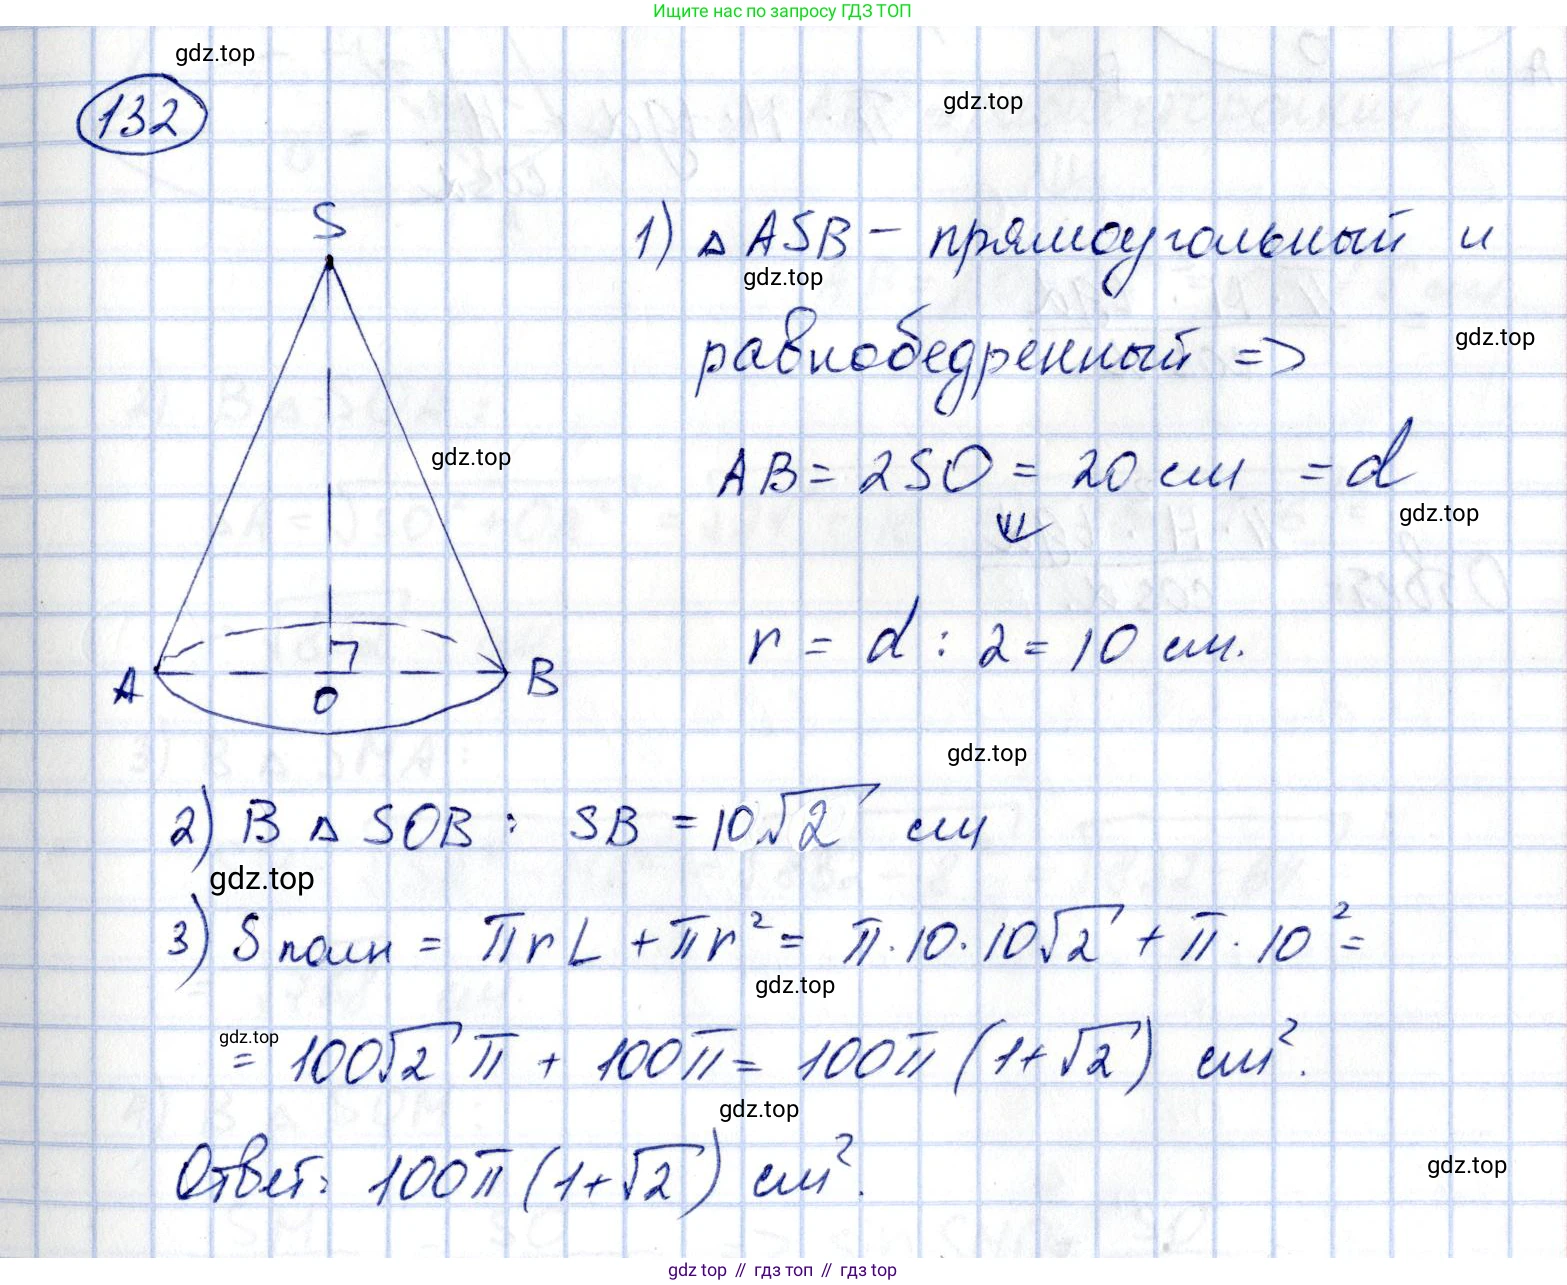 Ищите нас по запросу ГДЗ ТОП
gdz.top
132
gdz.top
S
1) Δ ASB – прямоугольный и
gdz.top
равнобедренный =>
gdz.top
AB = 2SO = 20 см = d
gdz.top
gdz.top
⇓
r = d : 2 = 10 см.
A
O
B
gdz.top
2) В Δ SOB : SB = 10√2 см
gdz.top
3) Sполн = πrL + πr² = π·10·10√2 + π·10² =
gdz.top
gdz.top
= 100√2 π + 100π = 100π (1+√2) см².
gdz.top
Ответ: 100π (1+√2) см².
gdz.top
gdz top // гдз топ // гдз top